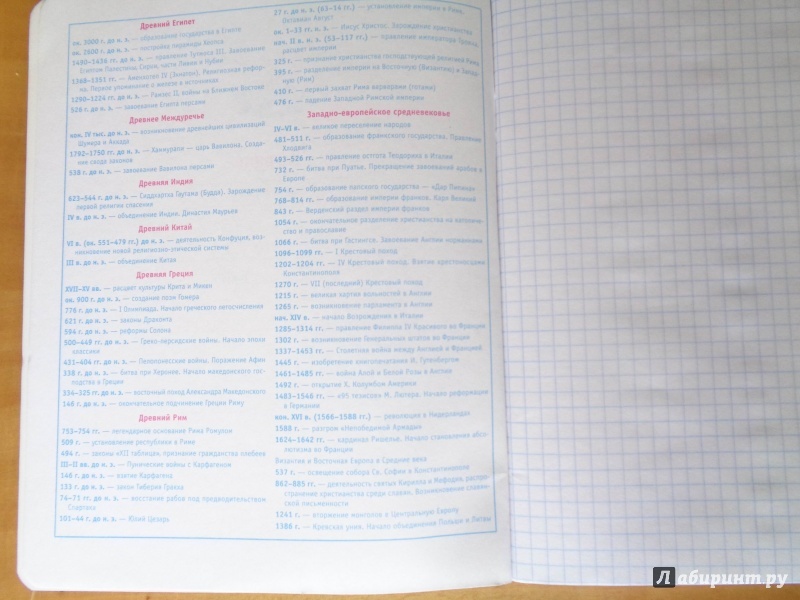 Древний Египет
ок. 3000 г. до н. э. — образование государства в Египте
ок. 2600 г. до н. э. — постройка пирамиды Хеопса
1490–1436 гг. до н. э. — правление Тутмоса III. Завоевание
Египтом Палестины, Сирии, части Ливии и Нубии
1368–1351 гг. — Аменхотеп IV (Эхнатон). Религиозная рефор-
ма. Первое упоминание о железе в источниках
1290–1224 гг. до н. э. — Рамзес II, войны на Ближнем Востоке
526 г. до н. э. — завоевание Египта персами
Древнее Междуречье
кон. IV тыс. до н. э. — возникновение древнейших цивилизаций
Шумера и Аккада
1792–1750 гг. до н. э. — Хаммурапи — царь Вавилона. Созда-
ние свода законов
538 г. до н. э. — завоевание Вавилона персами
Древняя Индия
623–544 г. до н. э. — Сиддхартха Гаутама (Будда). Зарождение
первой религии спасения
IV в. до н. э. — объединение Индии. Династия Маурьев
Древний Китай
VI в. (ок. 551–479 гг.) до н. э. — деятельность Конфуция, воз-
никновение новой религиозно-этической системы
III в. до н. э. — объединение Китая
Древняя Греция
XVII–XV вв. — расцвет культуры Крита и Микен
ок. 900 г. до н. э. — создание поэм Гомера
776 г. до н. э. — I Олимпиада. Начало греческого летосчисления
621 г. до н. э. — законы Драконта
594 г. до н. э. — реформы Солона
500–449 гг. до н. э. — Греко-персидские войны. Начало эпохи
классики
431–404 гг. до н. э. — Пелопонесские войны. Поражение Афин
338 г. до н. э. — битва при Херонее. Начало македонского гос-
подства в Греции
334–325 гг. до н. э. — восточный поход Александра Македонского
146 г. до н. э. — окончательное подчинение Греции Риму
Древний Рим
753–754 гг. — легендарное основание Рима Ромулом
509 г. — установление республики в Риме
494 г. — законы «XII таблиц», признание гражданства плебеев
III–II вв. до н. э. — Пунические войны с Карфагеном
146 г. до н. э. — взятие Карфагена
133 г. до н. э. — закон Тиберия Гракха
74–71 гг. до н. э. — восстание рабов под предводительством
Спартака
101–44 г. до н. э. — Юлий Цезарь
27 г. до н. э. — установление империи в Риме.
Октавиан Август
ок. 1–33 гг. н. э. — Иисус Христос. Зарождение христианства
нач. II в. н. э. (53–117 гг.) — правление императора Траяна,
расцвет империи
325 г. — признание христианства господствующей религией Рима
395 г. — разделение империи на Восточную (Византию) и Запад-
ную (Рим)
410 г. — первый захват Рима варварами (готами)
476 г. — падение Западной Римской империи
Западно-европейское средневековье
IV–VI в. — великое переселение народов
481–511 г. — образование франкского государства. Правление
Хлодвига
493–526 гг. — правление остгота Теодориха в Италии
732 г. — битва при Пуатье. Прекращение завоеваний арабов в
Европе
754 г. — образование папского государства — «Дар Пипина»
768–814 гг. — образование империи франков. Карл Великий
843 г. — Верденский раздел империи франков
1054 г. — окончательное разделение христианства на католиче-
ство и православие
1066 г. — битва при Гастингсе. Завоевание Англии норманнами
1096–1099 гг. — I Крестовый поход
1202–1204 гг. — IV Крестовый поход. Взятие крестоносцами
Константинополя
1270 г. — VII (последний) Крестовый поход
1215 г. — великая хартия вольностей в Англии
1265 г. — возникновение парламента в Англии
нач. XIV в. — начало Возрождения в Италии
1285–1314 гг. — правление Филиппа IV Красивого во Франции
1302 г. — возникновение Генеральных штатов во Франции
1337–1453 гг. — Столетняя война между Англией и Францией
1445 г. — изобретение книгопечатания И. Гутенбергом
1461–1485 гг. — война Алой и Белой Розы в Англии
1492 г. — открытие Х. Колумбом Америки
1483–1546 гг. — «95 тезисов» М. Лютера. Начало реформации
в Германии
кон. XVI в. (1566–1588 гг.) — революция в Нидерландах
1588 г. — разгром «Непобедимой Армады»
1624–1642 гг. — кардинал Ришелье. Начало становления абсо-
лютизма во Франции
Византия и Восточная Европа в Средние века
537 г. — освящение собора Св. Софии в Константинополе
862–885 гг. — деятельность святых Кирилла и Мефодия, распро-
странение христианства среди славян. Возникновение славян-
ской письменности
1241 г. — вторжение монголов в Центральную Европу
1386 г. — Кревская уния. Начало объединения Польши и Литвы
Лабиринт.ру